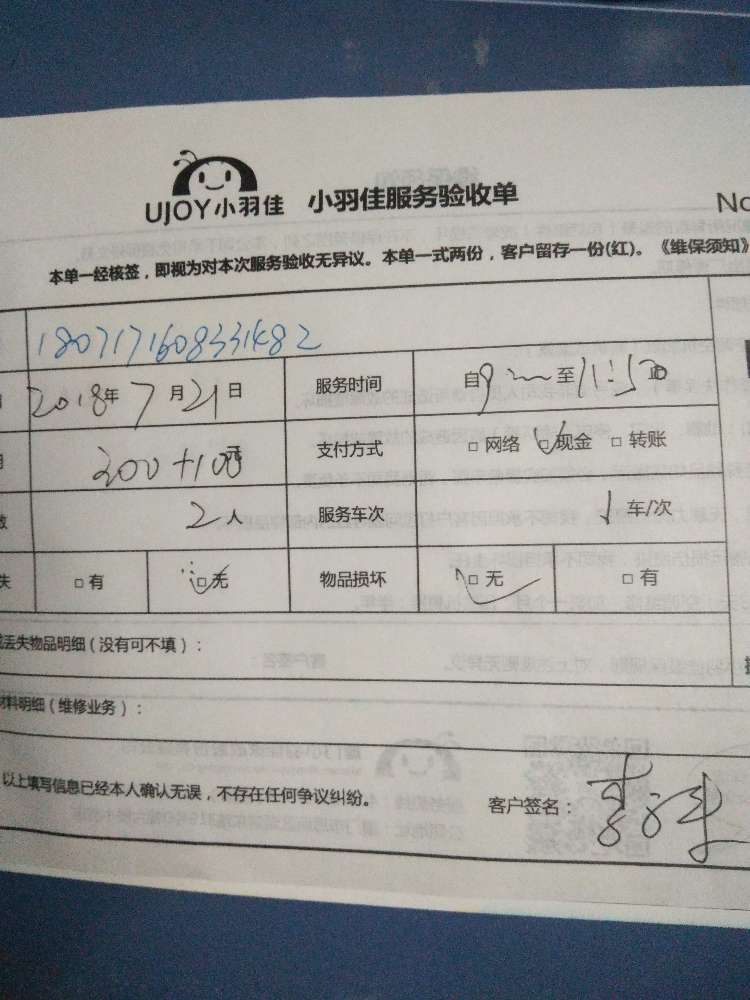 UJOY小羽佳 小羽佳服务验收单
No
本单一经核签，即视为对本次服务验收无异议。本单一式两份，客户留存一份(红)。《维保须知》
1807171608331482
2018年7月21日 服务时间 自9:—至11:50
200+100元 支付方式 □网络 □现金 □转账
2人 服务车次 1车/次
失 □有 □无 物品损坏 □无 □有
丢失物品明细（没有可不填）：
材料明细（维修业务）：
以上填写信息已经本人确认无误，不存在任何争议纠纷。 客户签名：